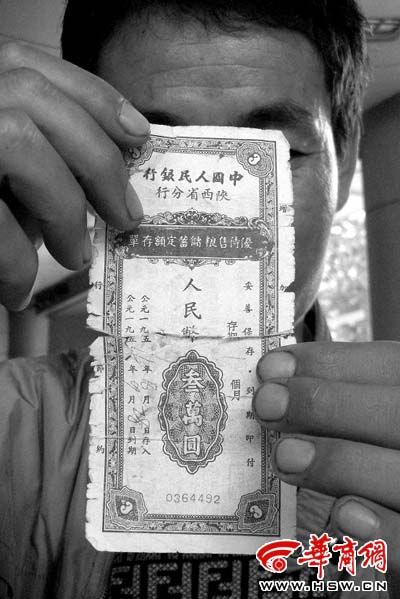 中國人民銀行
陝西省分行
優待售粮儲蓄定額存單
增加
妥善保存·到期即付
存期 個月
人民幣
叁萬圓
公元一九五 年 月 日存入
公元一九五 年 月 日到期
行節約
0364492
華商網
WWW.HSW.CN